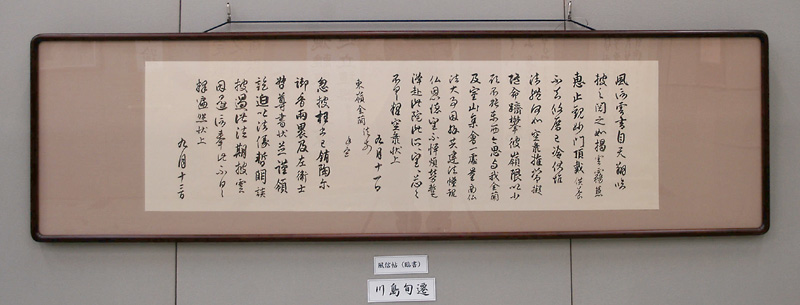 風信雲書自天翔臨
披之閲之如掲雲霧兼
恵止觀妙門頂戴供養
不知攸厝已冷伏惟
法體何如空海推常擬
隨命躋攀彼嶺限以少
願不能東西今思与我金蘭
及室山集會一處量商仏
法大事因縁共建法幢報
仏恩徳望不憚煩勞蹔
降赴此院此所望々忩々
不具釋空海状上
九月十一日
東嶺金蘭法前
謹空
忽披枉書已銷陶尓
御香兩裹及左衛士
督尊書状並謹領
訖迫以法縁暫闕談
披過此法期披雲
因還信奉此不具
釋遍照状上
九月十三日
風信帖（臨書）
川島旬遷